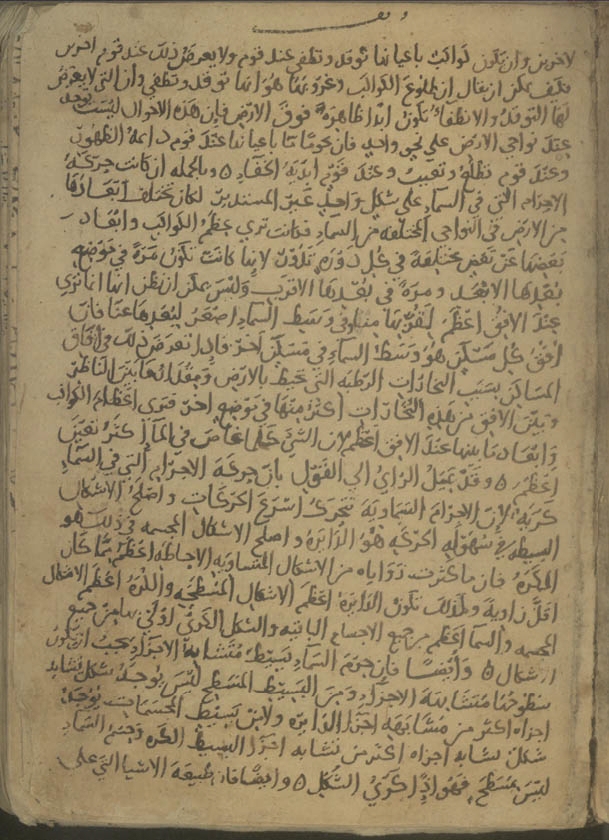 لاخرين وان تكون كواكب باعيانها توقد وتطفى عند قوم ولا يعرض ذلك عند قوم اخرين
فكيف يمكن ان يقال ان طلوع الكواكب وغروبها هو انها توقد وتطفى وان التي لا يعرض
لها التوقد والانطفاء تكون ابدا ظاهرة فوق الارض فان هذه الاحوال ليست توجد
عند نواحي الارض على نحو واحد فان نجوما ما باعيانها عند قوم دايمة الظهور
وعند قوم تطلع وتغيب وعند قوم ابدية الخفاء وبالجملة ان كانت حركة
الاجرام التي في السماء على شكل واحد غير المستدير لكان تختلف ابعادها
من الارض في النواحي المختلفه من السماء فكانت ترى عظم الكواكب وابعاد
بعضها عن بعض مختلفة في كل دورة تكون لانها كانت تكون مرة في موضع
بعدها الابعد ومرة في بعدها الاقرب وليس يمكن ان يظن انها انما ترى
عند الافق اعظم لقربها منا وفي وسط السماء اصغر لبعدها عنا فان
افق كل مسكن هو وسط السماء في مسكن اخر فاذا تعرض ذلك في افاق
المساكن بسبب البخارات الرطبه التي تحيط بالارض ومقدارها بين الناظر
وبين الافق من هذه البخارات اكثر منها في موضع اخر فترى اعظام الكواكب
وابعاد ما بينها عند الافق اعظم لان الشي كلما غاص في الماء اكثر تغير
اعظم وقد يميل الراي الى القول بان حركة الاجرام التي في السماء
كرية لان الاجرام السماوية تتحرك اسرع الحركات واصلح الاشكال
البسيطه في سهولة الحركة هو الدايره واصلح الاشكال المجسمه في ذلك هو
الكره فان ما كثرت زواياه من الاشكال المتساويه الاحاطه اعظم مما كان
اقل زاوية ولذلك تكون الدايرة اعظم الاشكال المسطحه والكرة اعظم الاشكال
المجسمه والسما اعظم من جميع الاجسام الباقيه والشكل الكري اولى بها من جميع
الاشكال وايضا فان جرم السماء بسيط متشابه الاجزاء يجب ان تكون
سطوحها متشابهة الاجزاء ومن البسيط المسطح ليس يوجد شكل تشابه
اجزاه اكثر من مشابهة اجزا الدايره ولا من بسيط المجسمات يوجد
شكل تشابه اجزاه اكثر من تشابه اجزا البسيط الكره وجسم السماء
ليس بمسطح فهو اذا كري الشكل وايضا فان طبيعة الاشيا التي على